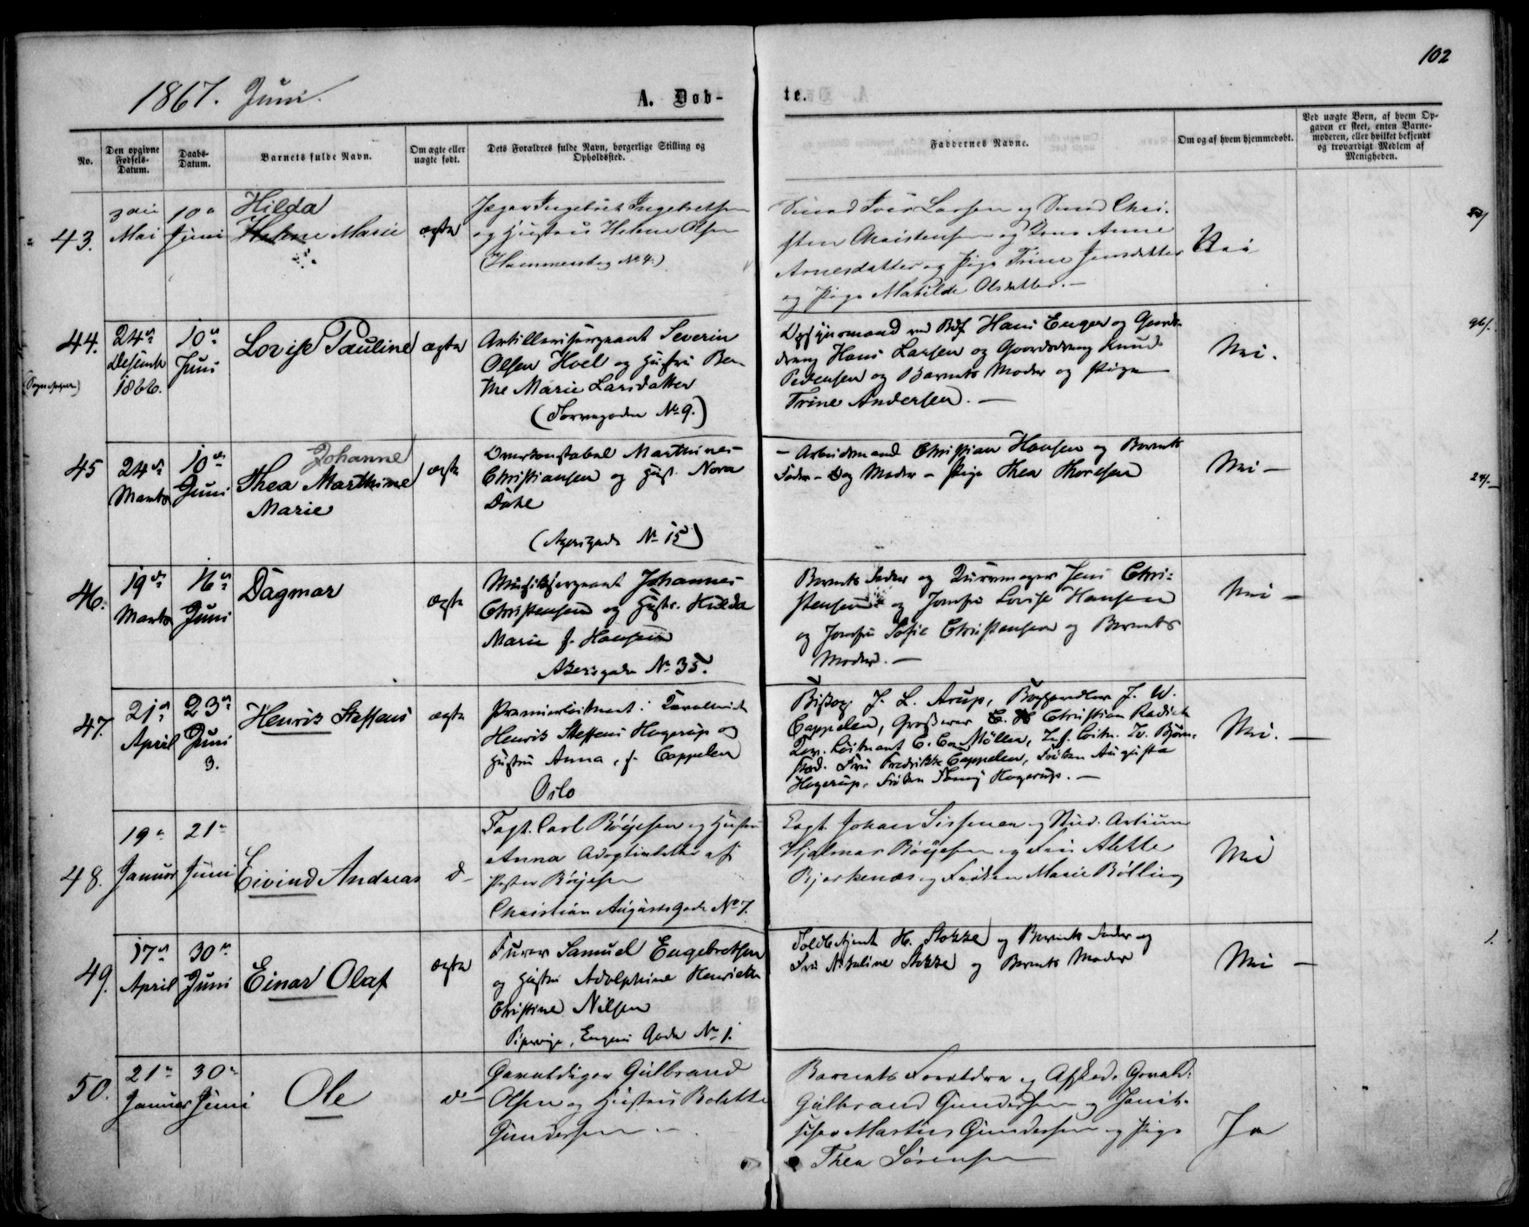 102
1867. Juni.
A. Døb-
te.
No.
Den opgivne Fødsels-Datum.
Daabs-Datum.
Barnets fulde Navn.
Om ægte eller uægte født.
Dets Forældres fulde Navn, borgerlige Stilling og Opholdssted.
Faddernes Navne.
Om og af hvem hjemmedøbt.
Ved uægte Børn, af hvem Op-
gaven er skeet, enten Barne-
moderen, eller hvilket bekjendt
og troværdigt Medlem af
Menigheden.
43.
3die Mai
10de Juni
Hilda
Helene Marie
ægte
Jæger Ingebret Ingebretsen
og Hustru Helene Olsen
(Hammersborg No 4.)
Smed Iver Larsen og Smed Chri-
sten Christensen og Anne
Arnesdatter og Pige Trine Jensdatter
og Pige Mathilde Olsdatter. —
Nei
44.
24de Desember 1866.
10de Juni
Lovise Pauline
ægte
Artillerisergeant Severin
Olsen Hoel og Hustru Ben-
the Marie Larsdatter
(Torvegaden No 9.)
Opsynsmand ved Hans Enger og Gaards-
dreng Hans Larsen og Gaardsdreng Knud
Pedersen og Barnets Moder og Pige
Trine Andersen. —
Nei.
45
24de Marts
10de Juni
Johanne
Thea Marthine
Marie
ægte
Overkonstabel Marthines
Christiansen og Hust. Nora
Dahl
(Agersgade No 15)
— Arbeidsmand Christian Hansen og Barnets
Fader — og Moder — Pige Thea Thoresen
Nei —
46.
19de Marts
16de Juni
Dagmar
ægte
Musiksergeant Johannes
Christensen og Hustr. Hulda
Marie f. Hansen
Akersgade No 35.
Barnets Fader og Uurmager Jens Chri-
stensen og Jomfru Lovise Hansen
og Jomfru Sofie Christensen og Barnets
Moder. —
Nei —
47.
21de April
23de Juni
3.
Henrik Steffens
ægte
Premierleitnant i Kavalleriet
Henrik Steffens Hagerup og
Hustru Anna, f. Cappelen
Oslo
Biskop J. L. Arup, Boghandler J. W.
Cappelen, Grosserer Christian Radich
Leitnant C. Møller, Inf. Leitn. Bjørn-
stad. Fru Fredrikke Cappelen, Frøken Augusta
Hagerup, Frøken Fanny Hagerup. —
Nei. —
48.
19de Januar
21de Juni
Eivind Andreas
do
Fagt. Carl Bøyesen og Hustru
Anna Adoptivdatter af
Bøyesen
Christian Augusts Gade No 7.
Fagt. Johan Sissener og Stud. Artium
Hjalmar Bøyesen og Fru Alette
Bjerkenæs og Frøken Marie Bølling
Nei
49.
17de April
30te Juni
Einar Olaf
ægte
Furer Samuel Engebretsen
og Hustru Adolphine Henriette
Christine Nilsen
Pipervigen, Eugenies Gade No 1.
Toldbetjent H. Stokke og Barnets Fader og
Fru Nikoline Stokke og Barnets Moder
Nei —
50.
21de Januar
30te Juni
Ole
do
Gevaldiger Gulbrand
Olsen og Hustru Bolette
Gundersen
Barnets Forældre og Afsked. Gevald.
Gulbrand Gundersen og Janit-
schar Martin Gundersen og Pige
Thea Sørensen
Ja